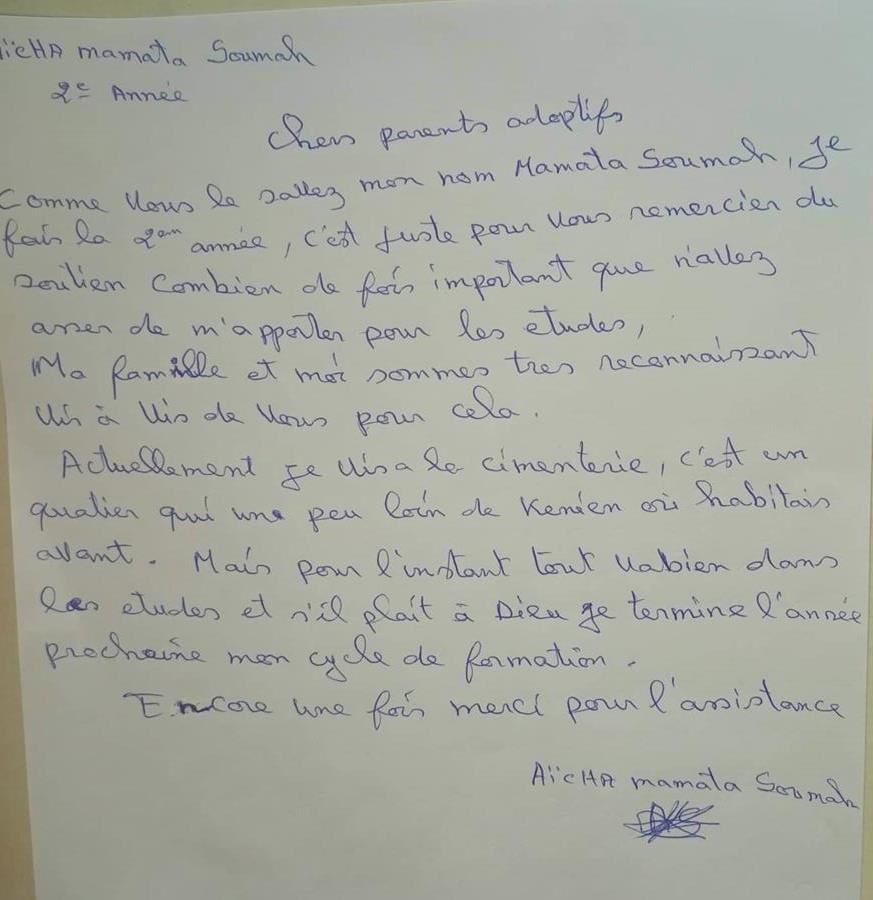 AïcHA mamata Soumah
2e Année
Chers parents adoptifs
Comme Vous le savez mon nom Mamata Soumah, Je
fais la 2em année, c'est juste pour Vous remercier du
soutien Combien de fois important que n'avez
asser de m'apporter pour les etudes,
Ma famille et moi sommes tres reconnaissant
Vis à Vis de Vous pour cela.
Actuellement je Vis a la cimenterie, c'est un
quatier qui une peu loin de Kenien où habitais
avant. Mais pour l'instant tout vabien dans
les etudes et s'il plaît à Dieu je termine l'année
prochaine mon cycle de formation.
Encore une fois merci pour l'assistance
AïcHA mamata Soumah